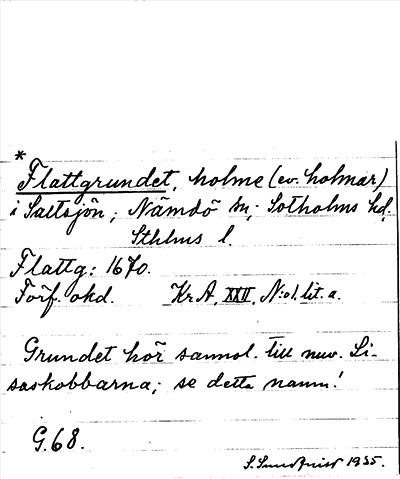 *
Flattgrundet, holme (ev. holmar)
i Saltsjön; Nämdö sn; Sotholms hd,
Sthlms l.
Flattg: 1670.
Förf. okd. KrA, XXII, N:o 1. lit. a.
Grundet hör sannol. till nuv. Li-
saskobbarna; se detta namn!
G.68.
S. Sundqvist 1935.